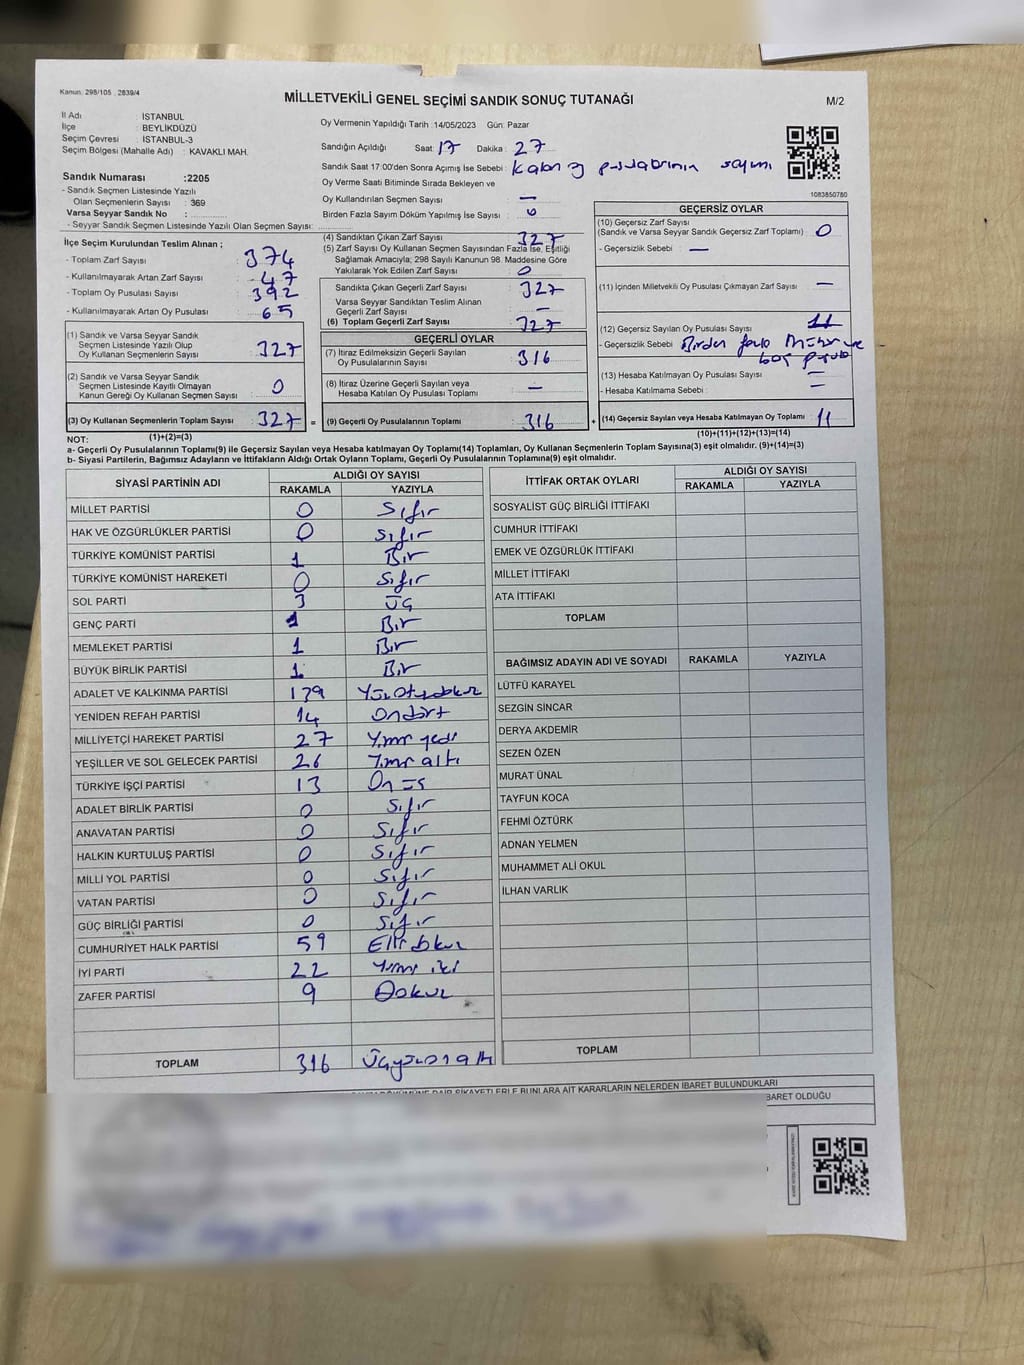 Kanun: 298/105 , 2839/4
MİLLETVEKİLİ GENEL SEÇİMİ SANDIK SONUÇ TUTANAĞI
M/2
İl Adı : İSTANBUL
İlçe : BEYLİKDÜZÜ
Seçim Çevresi : İSTANBUL-3
Seçim Bölgesi (Mahalle Adı) : KAVAKLI MAH.
Oy Vermenin Yapıldığı Tarih :14/05/2023 Gün: Pazar
Sandığın Açıldığı Saat: 17 Dakika : 27
Sandık Saat 17:00'den Sonra Açımış İse Sebebi : Kalan pusulalarının sayımı
Oy Verme Saati Bitiminde Sırada Bekleyen ve
Oy Kullandırılan Seçmen Sayısı : —
Birden Fazla Sayım Döküm Yapılmış İse Sayısı : 0
1083850780
Sandık Numarası :2205
- Sandık Seçmen Listesinde Yazılı
Olan Seçmenlerin Sayısı : 369
Varsa Seyyar Sandık No :
- Seyyar Sandık Seçmen Listesinde Yazılı Olan Seçmen Sayısı:
İlçe Seçim Kurulundan Teslim Alınan ;
- Toplam Zarf Sayısı : 374
- Kullanılmayarak Artan Zarf Sayısı : 47
- Toplam Oy Pusulası Sayısı : 392
- Kullanılmayarak Artan Oy Pusulası : 65
(1) Sandık ve Varsa Seyyar Sandık
Seçmen Listesinde Yazılı Olup
Oy Kullanan Seçmenlerin Sayısı : 327
(2) Sandık ve Varsa Seyyar Sandık
Seçmen Listesinde Kayıtlı Olmayan
Kanun Gereği Oy Kullanan Seçmen Sayısı : 0
(3) Oy Kullanan Seçmenlerin Toplam Sayısı : 327 =
(4) Sandıktan Çıkan Zarf Sayısı : 327
(5) Zarf Sayısı Oy Kullanan Seçmen Sayısından Fazla İse, Eşitliği
Sağlamak Amacıyla; 298 Sayılı Kanunun 98. Maddesine Göre
Yakılarak Yok Edilen Zarf Sayısı : 0
Sandıkta Çıkan Geçerli Zarf Sayısı : 327
Varsa Seyyar Sandıktan Teslim Alınan
Geçerli Zarf Sayısı : —
(6) Toplam Geçerli Zarf Sayısı : 327
GEÇERLİ OYLAR
(7) İtiraz Edilmeksizin Geçerli Sayılan
Oy Pusulalarının Sayısı : 316
(8) İtiraz Üzerine Geçerli Sayılan veya
Hesaba Katılan Oy Pusulası Toplamı : —
(9) Geçerli Oy Pusulalarının Toplamı : 316 +
GEÇERSİZ OYLAR
(10) Geçersiz Zarf Sayısı
(Sandık ve Varsa Seyyar Sandık Geçersiz Zarf Toplamı) : 0
- Geçersizlik Sebebi : —
(11) İçinden Milletvekili Oy Pusulası Çıkmayan Zarf Sayısı : —
(12) Geçersiz Sayılan Oy Pusulası Sayısı : 11
- Geçersizlik Sebebi : Birden fazla Mühür ve
boş pusula
(13) Hesaba Katılmayan Oy Pusulası Sayısı : —
- Hesaba Katılmama Sebebi : —
(14) Geçersiz Sayılan veya Hesaba Katılmayan Oy Toplamı : 11
NOT: (1)+(2)=(3) (10)+(11)+(12)+(13)=(14)
a- Geçerli Oy Pusulalarının Toplamı(9) ile Geçersiz Sayılan veya Hesaba katılmayan Oy Toplamı(14) Toplamları, Oy Kullanan Seçmenlerin Toplam Sayısına(3) eşit olmalıdır. (9)+(14)=(3)
b- Siyasi Partilerin, Bağımsız Adayların ve İttifakların Aldığı Ortak Oyların Toplamı, Geçerli Oy Pusulalarının Toplamına(9) eşit olmalıdır.
SİYASİ PARTİNİN ADI ALDIĞI OY SAYISI
RAKAMLA YAZIYLA
MİLLET PARTİSİ 0 Sıfır
HAK VE ÖZGÜRLÜKLER PARTİSİ 0 Sıfır
TÜRKİYE KOMÜNİST PARTİSİ 1 Bir
TÜRKİYE KOMÜNİST HAREKETİ 0 Sıfır
SOL PARTİ 3 Üç
GENÇ PARTİ 1 Bir
MEMLEKET PARTİSİ 1 Bir
BÜYÜK BİRLİK PARTİSİ 1 Bir
ADALET VE KALKINMA PARTİSİ 139 Yüzotuzdokuz
YENİDEN REFAH PARTİSİ 14 Ondört
MİLLİYETÇİ HAREKET PARTİSİ 27 Yirmi yedi
YEŞİLLER VE SOL GELECEK PARTİSİ 26 Yirmi altı
TÜRKİYE İŞÇİ PARTİSİ 13 On üç
ADALET BİRLİK PARTİSİ 0 Sıfır
ANAVATAN PARTİSİ 0 Sıfır
HALKIN KURTULUŞ PARTİSİ 0 Sıfır
MİLLİ YOL PARTİSİ 0 Sıfır
VATAN PARTİSİ 0 Sıfır
GÜÇ BİRLİĞİ PARTİSİ 0 Sıfır
CUMHURİYET HALK PARTİSİ 59 Elli dokuz
İYİ PARTİ 22 Yirmi iki
ZAFER PARTİSİ 9 Dokuz
TOPLAM 316 Üçyüzonaltı
İTTİFAK ORTAK OYLARI ALDIĞI OY SAYISI
RAKAMLA YAZIYLA
SOSYALİST GÜÇ BİRLİĞİ İTTİFAKI
CUMHUR İTTİFAKI
EMEK VE ÖZGÜRLÜK İTTİFAKI
MİLLET İTTİFAKI
ATA İTTİFAKI
TOPLAM
BAĞIMSIZ ADAYIN ADI VE SOYADI RAKAMLA YAZIYLA
LÜTFÜ KARAYEL
SEZGİN SİNCAR
DERYA AKDEMİR
SEZEN ÖZEN
MURAT ÜNAL
TAYFUN KOCA
FEHMİ ÖZTÜRK
ADNAN YELMEN
MUHAMMET ALİ OKUL
İLHAN VARLIK
TOPLAM
DAİR ŞİKAYETLERLE BUNLARA AİT KARARLARIN NELERDEN İBARET BULUNDUKLARI
BARET OLDUĞU